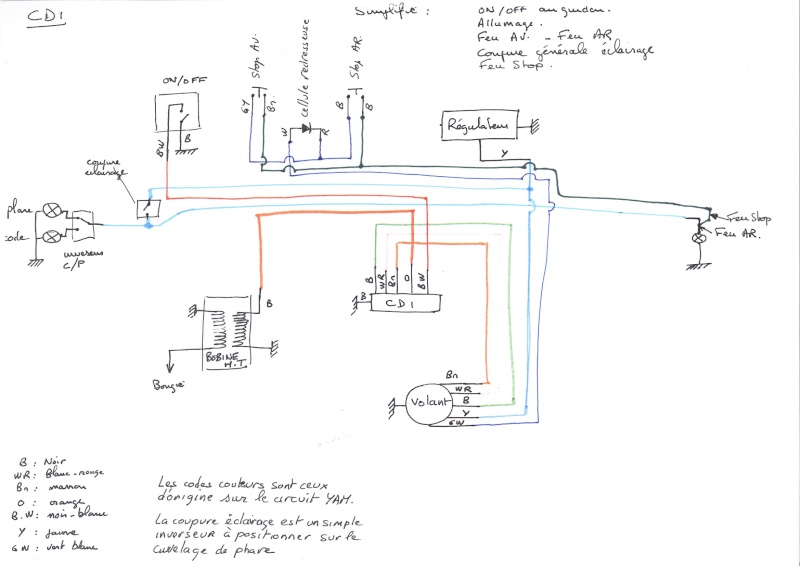 CDI
Simplifié :
ON/OFF au guidon.
Allumage.
Feu AV. - Feu AR
Coupure générale éclairage
Feu Stop.
ON/OFF
BW
B
Stop AV.
GY
Bn
cellule redresseuse
W
R
Stop AR.
B
B
Régulateur
Y
coupure
éclairage
phare
code
inverseur
C/P
Feu Stop
Feu AR.
B
WR
Bn
O
BW
B
CDI
B
BOBINE
H.T
Bougie
Volant
Bn
WR
B
Y
GW
B : Noir
WR : Blanc-rouge
Bn : marron
O : orange
B.W : noir-blanc
Y : jaune
GW : vert blanc
Les codes couleurs sont ceux
d'origine sur le circuit YAM.
La coupure éclairage est un simple
inverseur à positionner sur le
cuvelage de phare